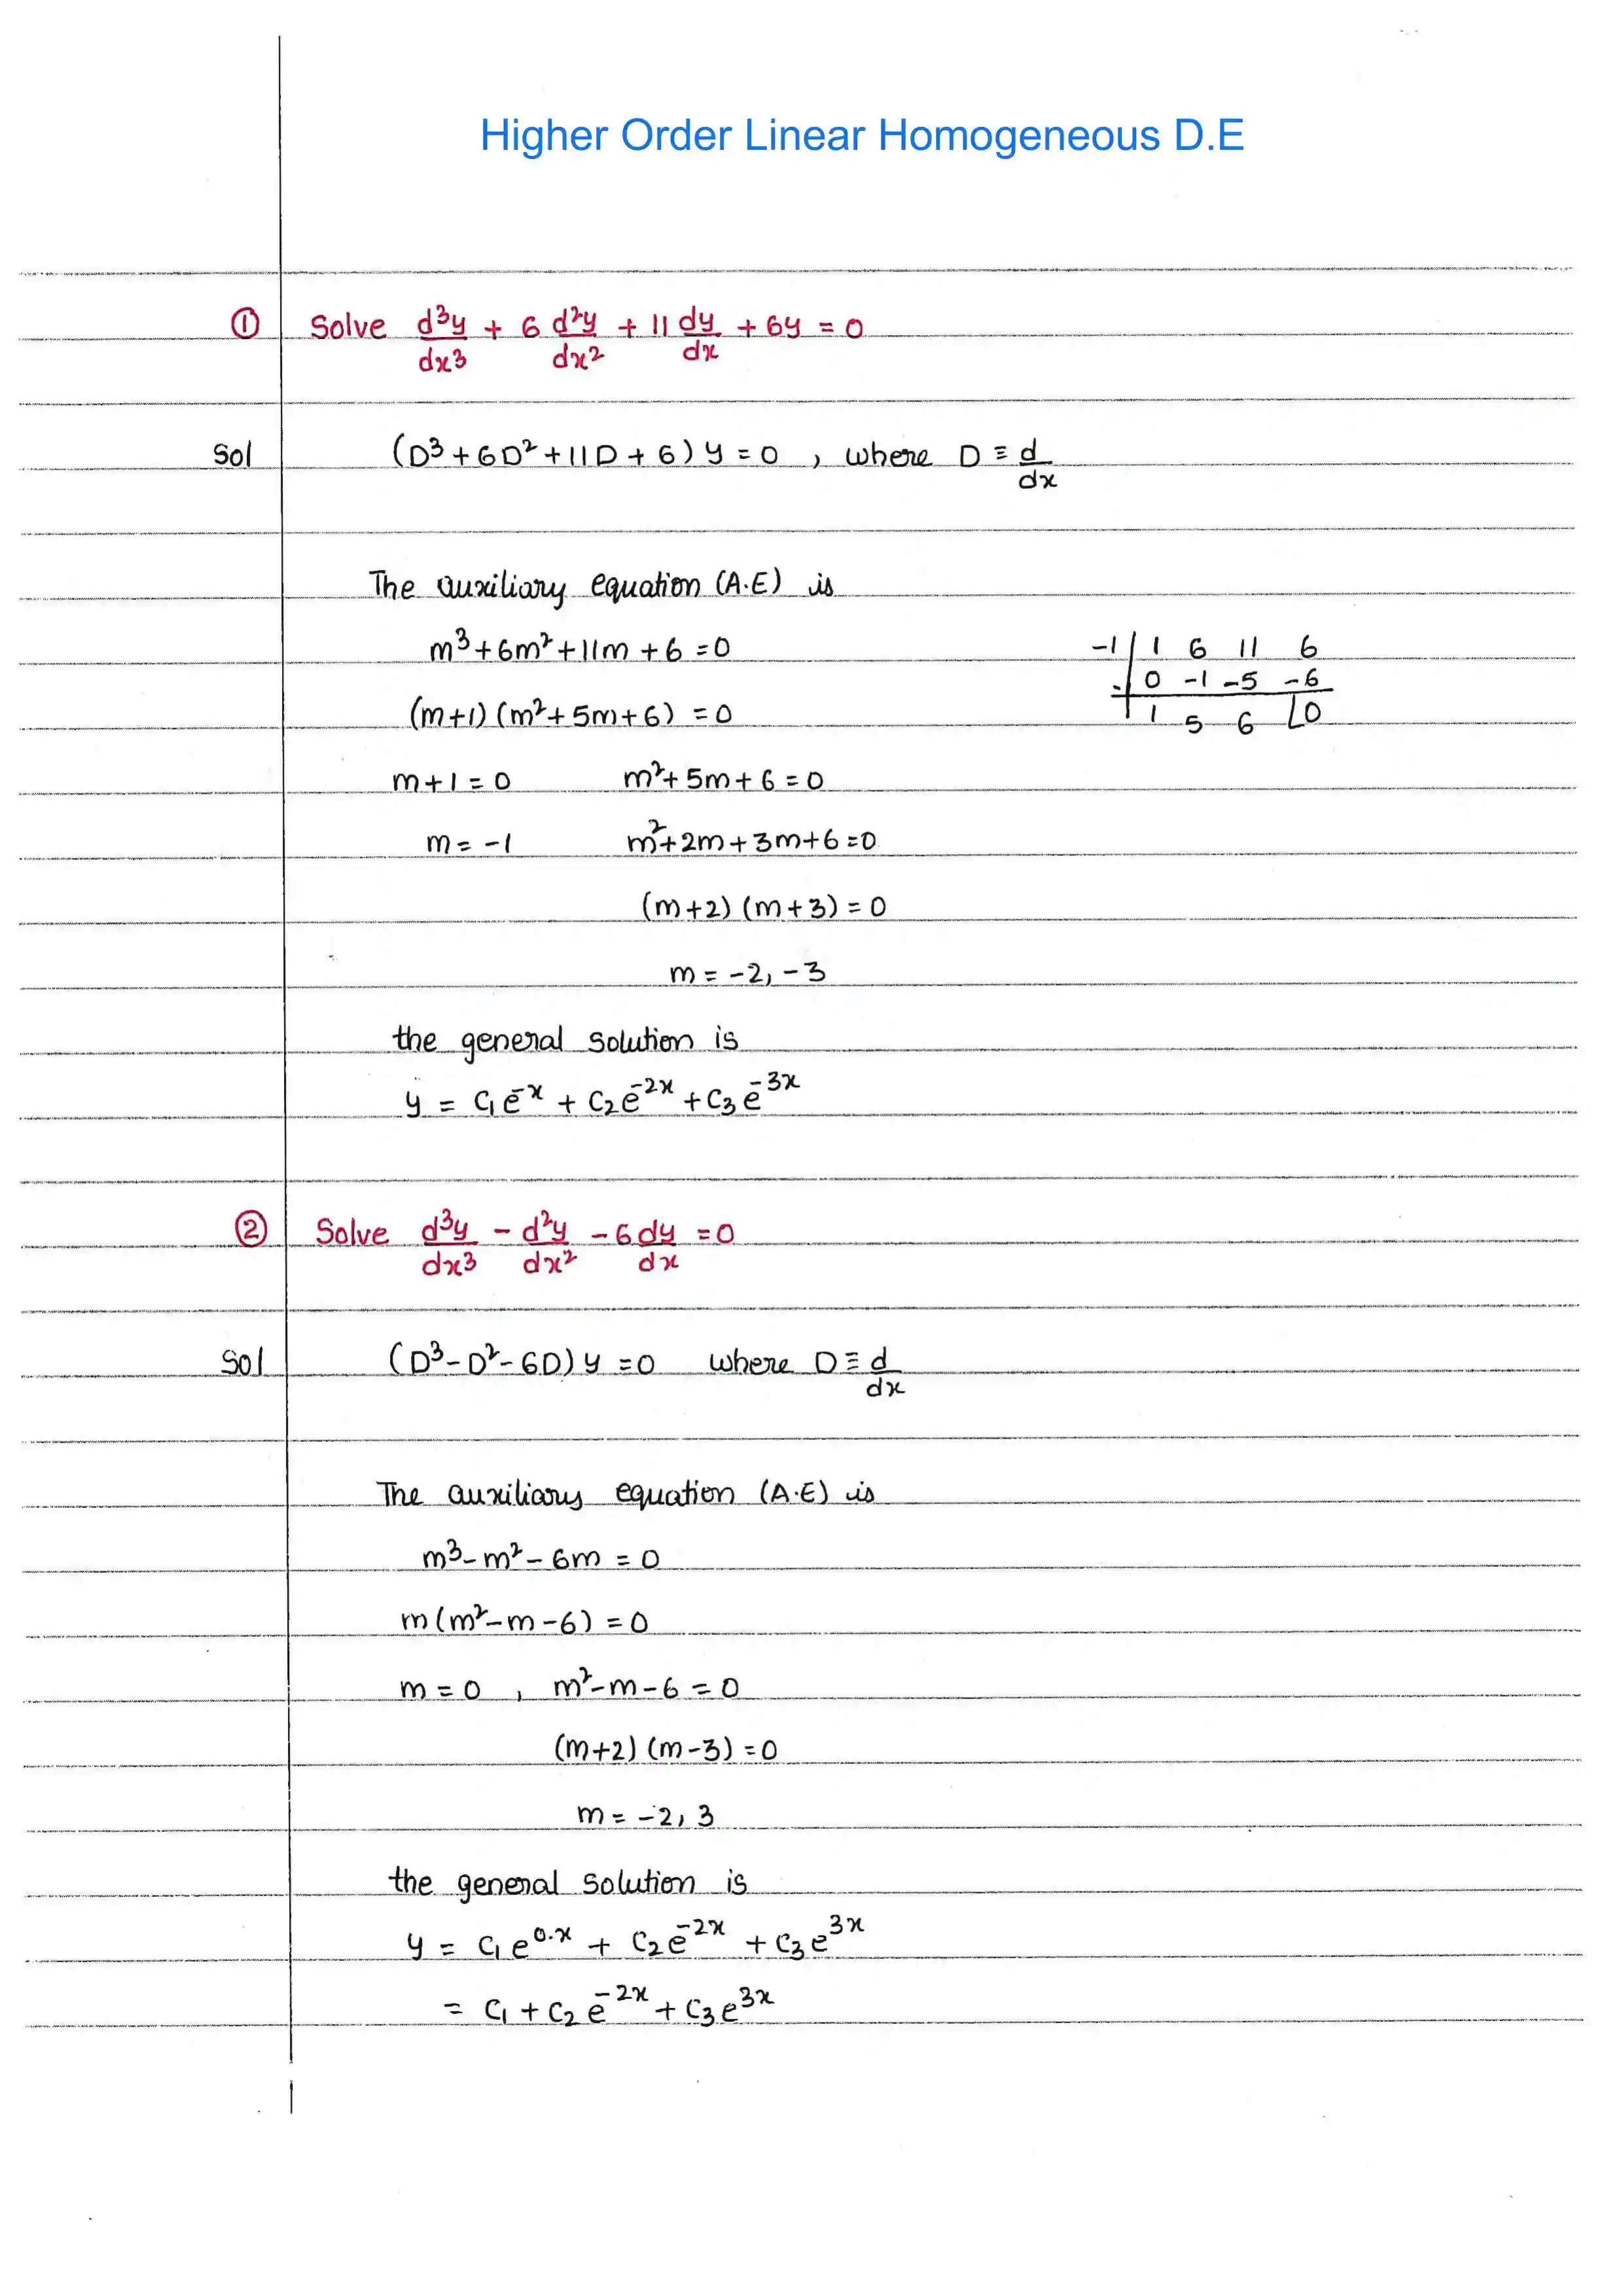 Higher Order Linear Homogeneous D.E
① Solve d³y/dx³ + 6 d²y/dx² + 11 dy/dx + 6y = 0
Sol (D³ + 6D² + 11D + 6) y = 0 , where D ≡ d/dx
The auxiliary equation (A.E) is
m³ + 6m² + 11m + 6 = 0 -1 | 1 6 11 6
0 -1 -5 -6
(m+1) (m² + 5m + 6) = 0 1 5 6 |0
m + 1 = 0 m² + 5m + 6 = 0
m = -1 m² + 2m + 3m + 6 = 0
(m+2) (m+3) = 0
m = -2, -3
the general solution is
y = C₁e⁻ˣ + C₂e⁻²ˣ + C₃e⁻³ˣ
② Solve d³y/dx³ - d²y/dx² - 6 dy/dx = 0
Sol (D³ - D² - 6D) y = 0 where D ≡ d/dx
The auxiliary equation (A.E) is
m³ - m² - 6m = 0
m (m² - m - 6) = 0
m = 0 , m² - m - 6 = 0
(m+2) (m-3) = 0
m = -2, 3
the general solution is
y = C₁e⁰·ˣ + C₂e⁻²ˣ + C₃e³ˣ
= C₁ + C₂e⁻²ˣ + C₃e³ˣ